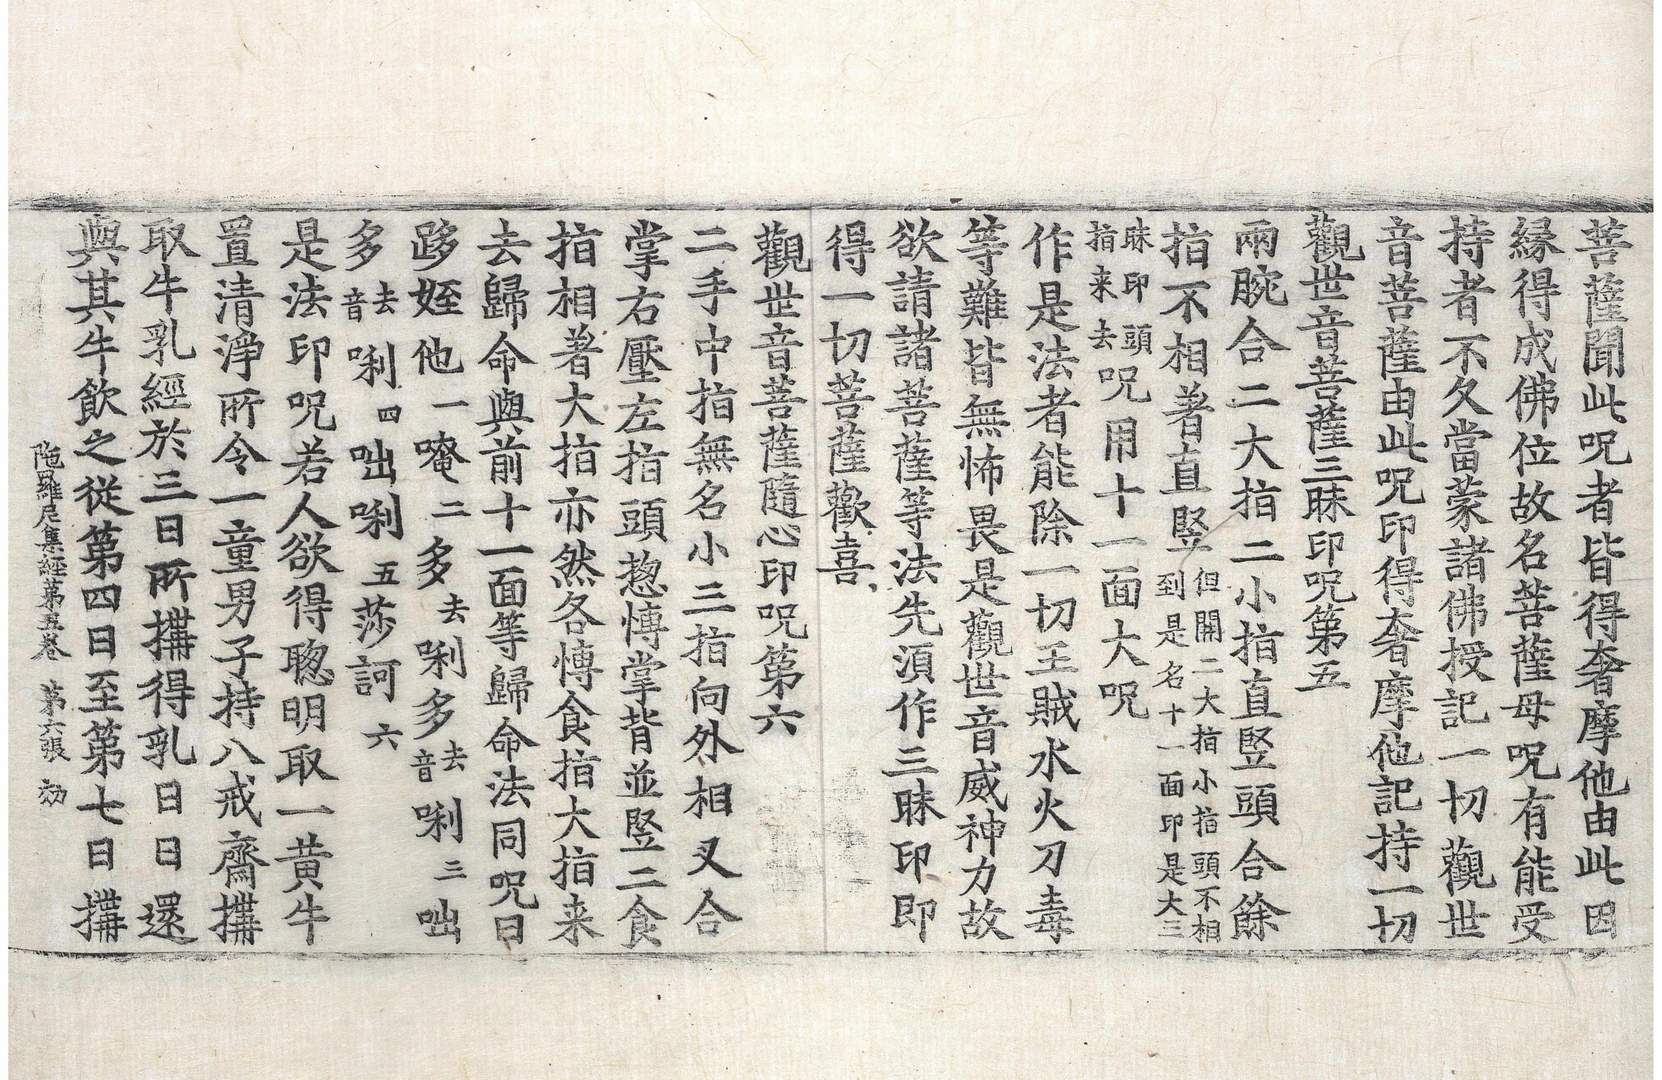 菩薩聞此呪者皆得奢摩他由此因
緣得成佛位故名菩薩母呪有能受
持者不久當蒙諸佛授記一切觀世
音菩薩由此呪印得奢摩他記持一切
觀世音菩薩三昧印呪第五
兩腕合二大指二小指直竪頭合餘
指不相著直竪但開二大指小指頭不相到是名十一面印是大三
昧印頭指来去呪用十一面大呪
作是法者能除一切王賊水火刀毒
等難皆無怖畏是觀世音威神力故
欲請諸菩薩等法先須作三昧印即
得一切菩薩歡喜
觀世音菩薩隨心印呪第六
二手中指無名小三指向外相叉合
掌右壓左指頭惣愽掌背並竪二食
指相著大指亦然各愽食指大指来
去歸命與前十一面等歸命法同呪曰
跢姪他一唵二多去唎多去音唎三咄
多去音唎四咄唎五莎訶六
是法印呪若人欲得聦明取一黃牛
置清淨所令一童男子持八戒齋㨍
取牛乳經於三日所㨍得乳日日還
與其牛飲之從第四日至第七日㨍
陁羅尼集經第五卷　第六張　効